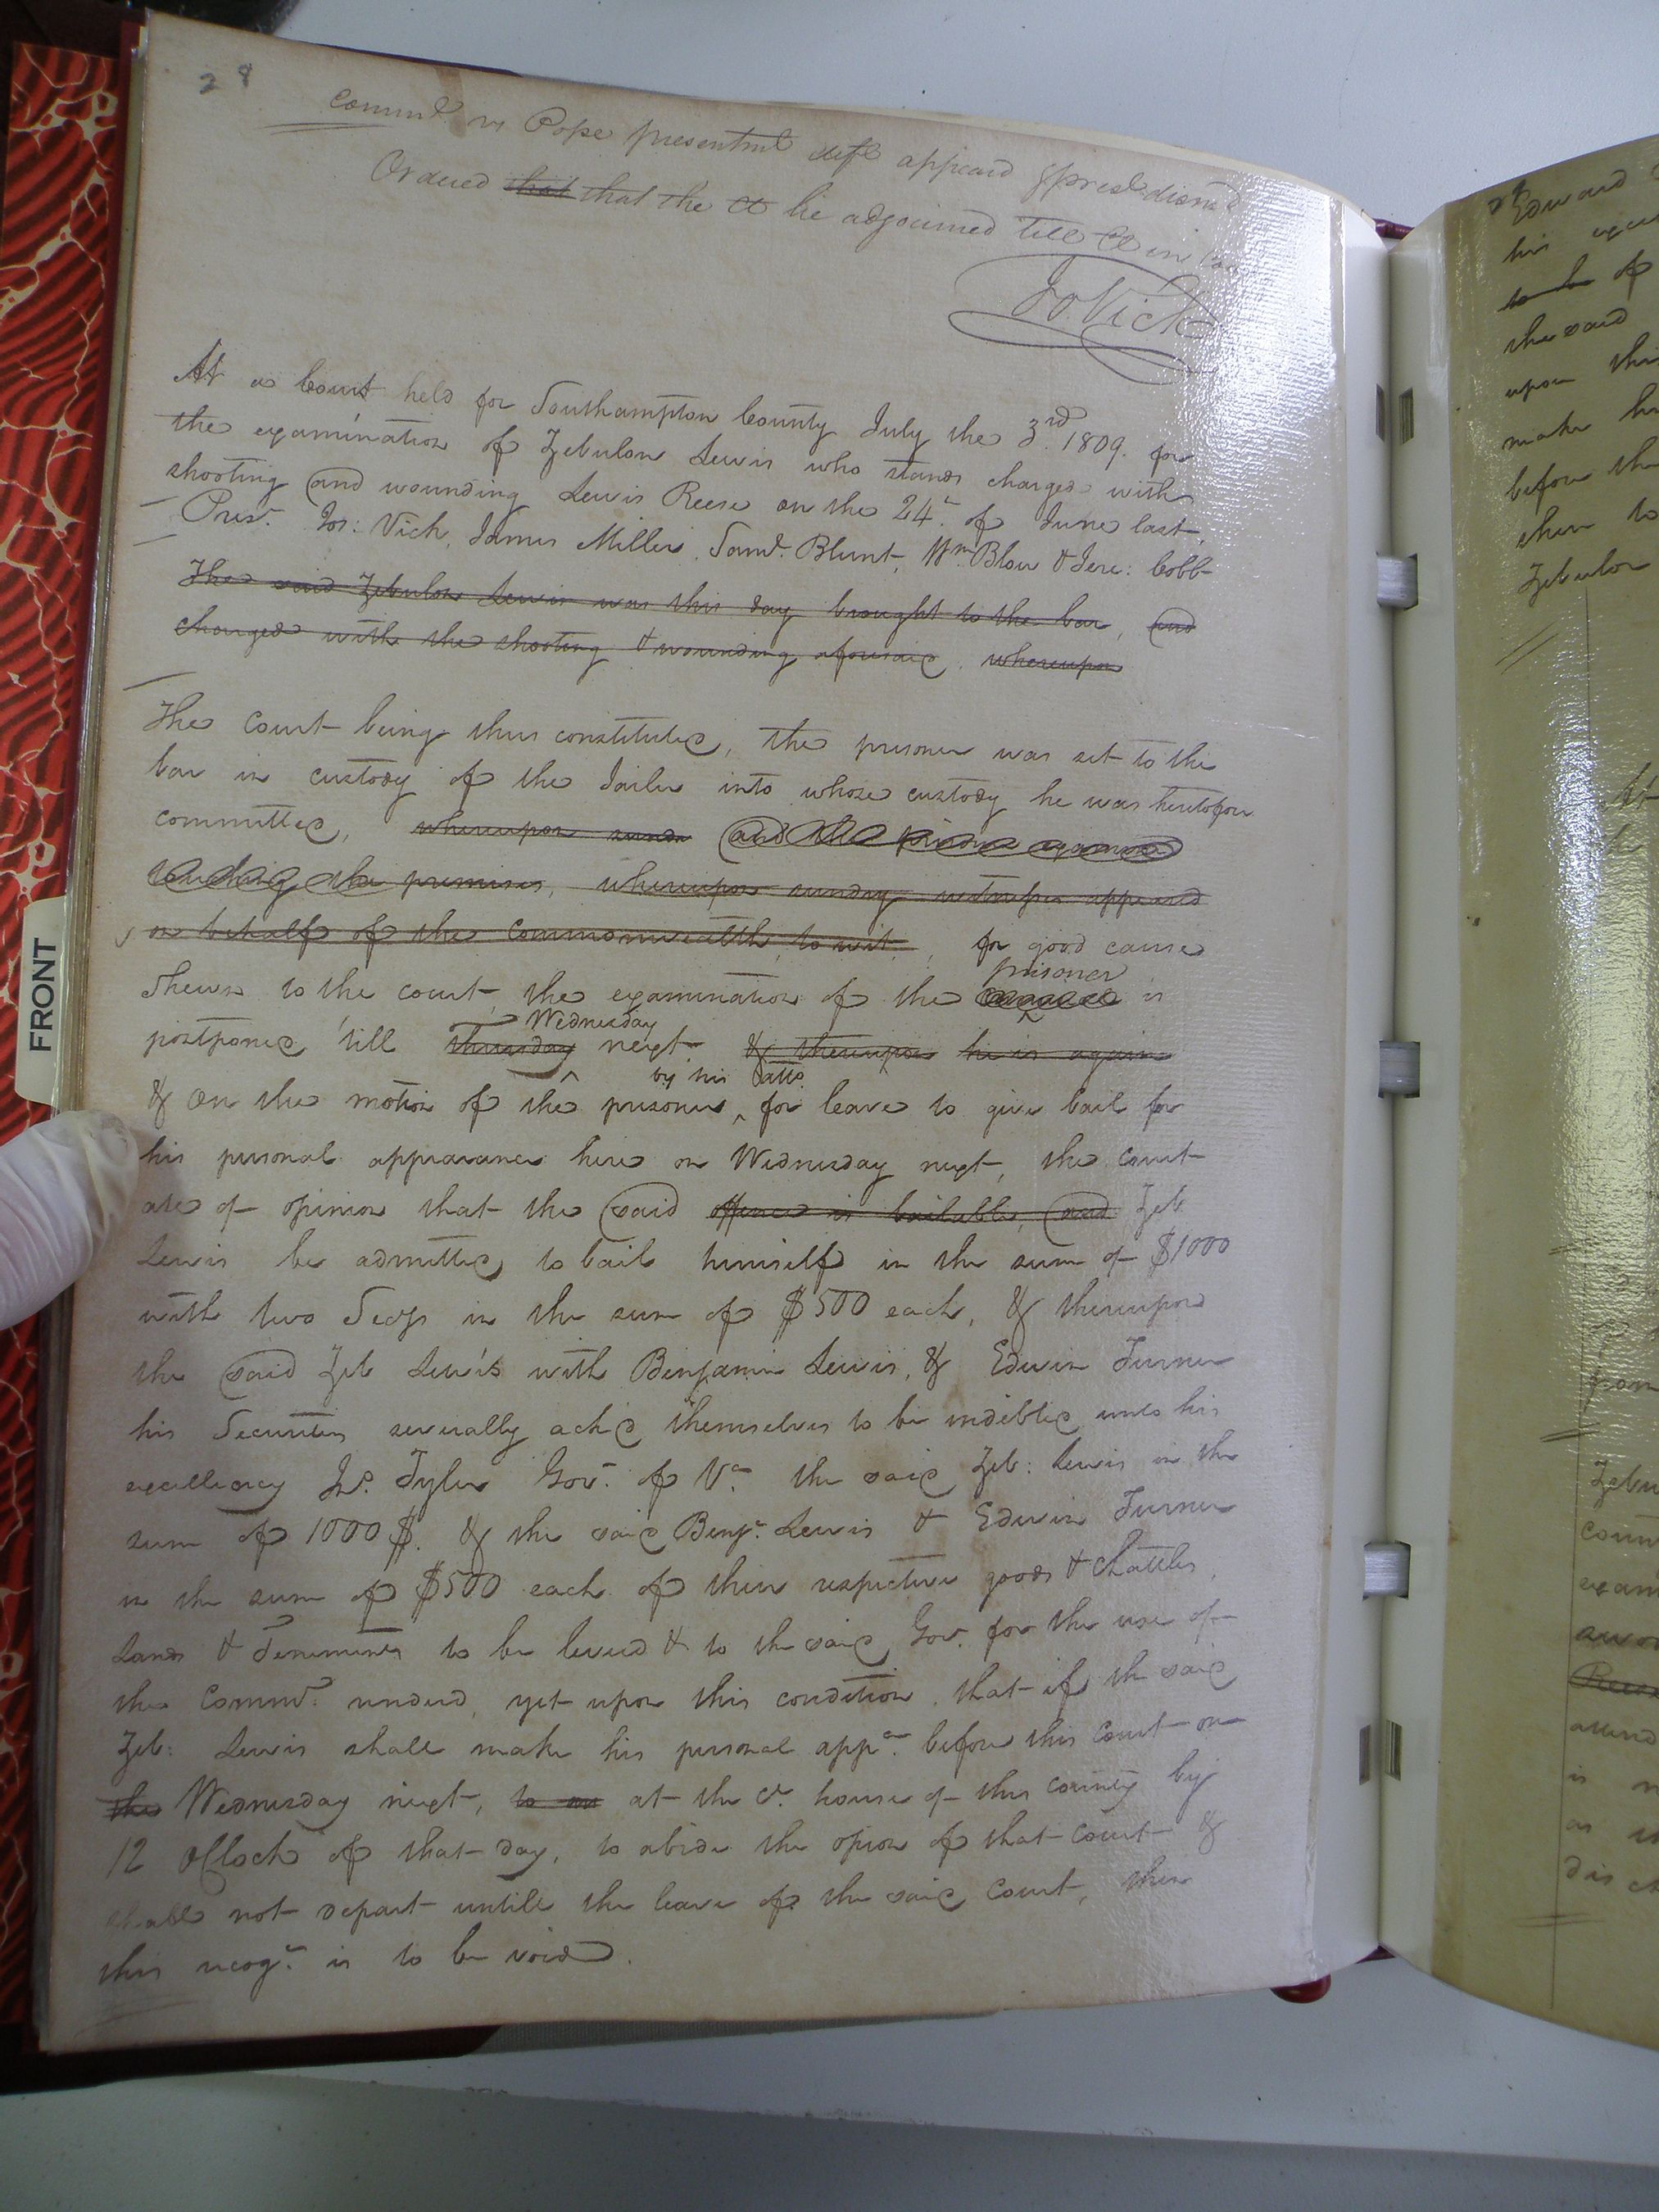 28
Commw vs Pope presentmt deft appeard & prest dismd
Ordered that that the Ct be adjourned till Ct in
Jo. Vick
At a Court held for Southampton County July the 3rd 1809. for
the examination of Zebulon Lewis who stands charged with
shooting and wounding Lewis Reese on the 24th of June last,
Prest. Jos: Vick, James Miller, Saml. Blunt, Wm. Blow & Jere: Cobb
The said Zebulon Lewis was this day brought to the bar, and
charged with the shooting & wounding aforesaid, whereupon
The Court being thus constituted, the prisoner was set to the
bar in custody of the Jailer into whose custody he was heretofore
committed, whereupon sundr and the prisoner examined
touching the premises, whereupon sundry witnesses appeared
on behalf of the Commonwealth, to wit, , for good cause
prisoner
Shewn to the court, the examination of the is
Wednesday
postponed till thursday next. & thereupon he is again
by his atto.
& On the motion of the prisoner, for leave to give bail for
his personal appearance here on Wednesday next, the court
are of opinion that the said offence is bailable, and Zeb
Lewis be admitted to bail himself in the sum of $1000
with two Secys in the sum of $500 each, & thereupon
the said Zeb Lewis with Benjamin Lewis, & Edwin Turner
his Securities severally ackd themselves to be indebted unto his
excellency Jno. Tyler Gov. of Va. the said Zeb: Lewis in the
sum of 1000$. & the said Benj. Lewis & Edwin Turner
in the sum of $500 each of their respective goods & Chattles,
Lands & Tenements to be levied & to the said Gov. for the use of
the Commw. rendered, yet upon this condition, that if the said
Zeb: Lewis shall make his personal appce. before this Court on
the Wednesday next, to an at the Ct. house of this County by
12 oClock of that day, to abide the opion of that Court &
shall not depart untill the leave of the said Court, then
this recogce. is to be void.
FRONT
Edward
his
to be of
the said
upon this
make h
before the
then to
Zebulon
Zebu
exam
attend
is
as
disch